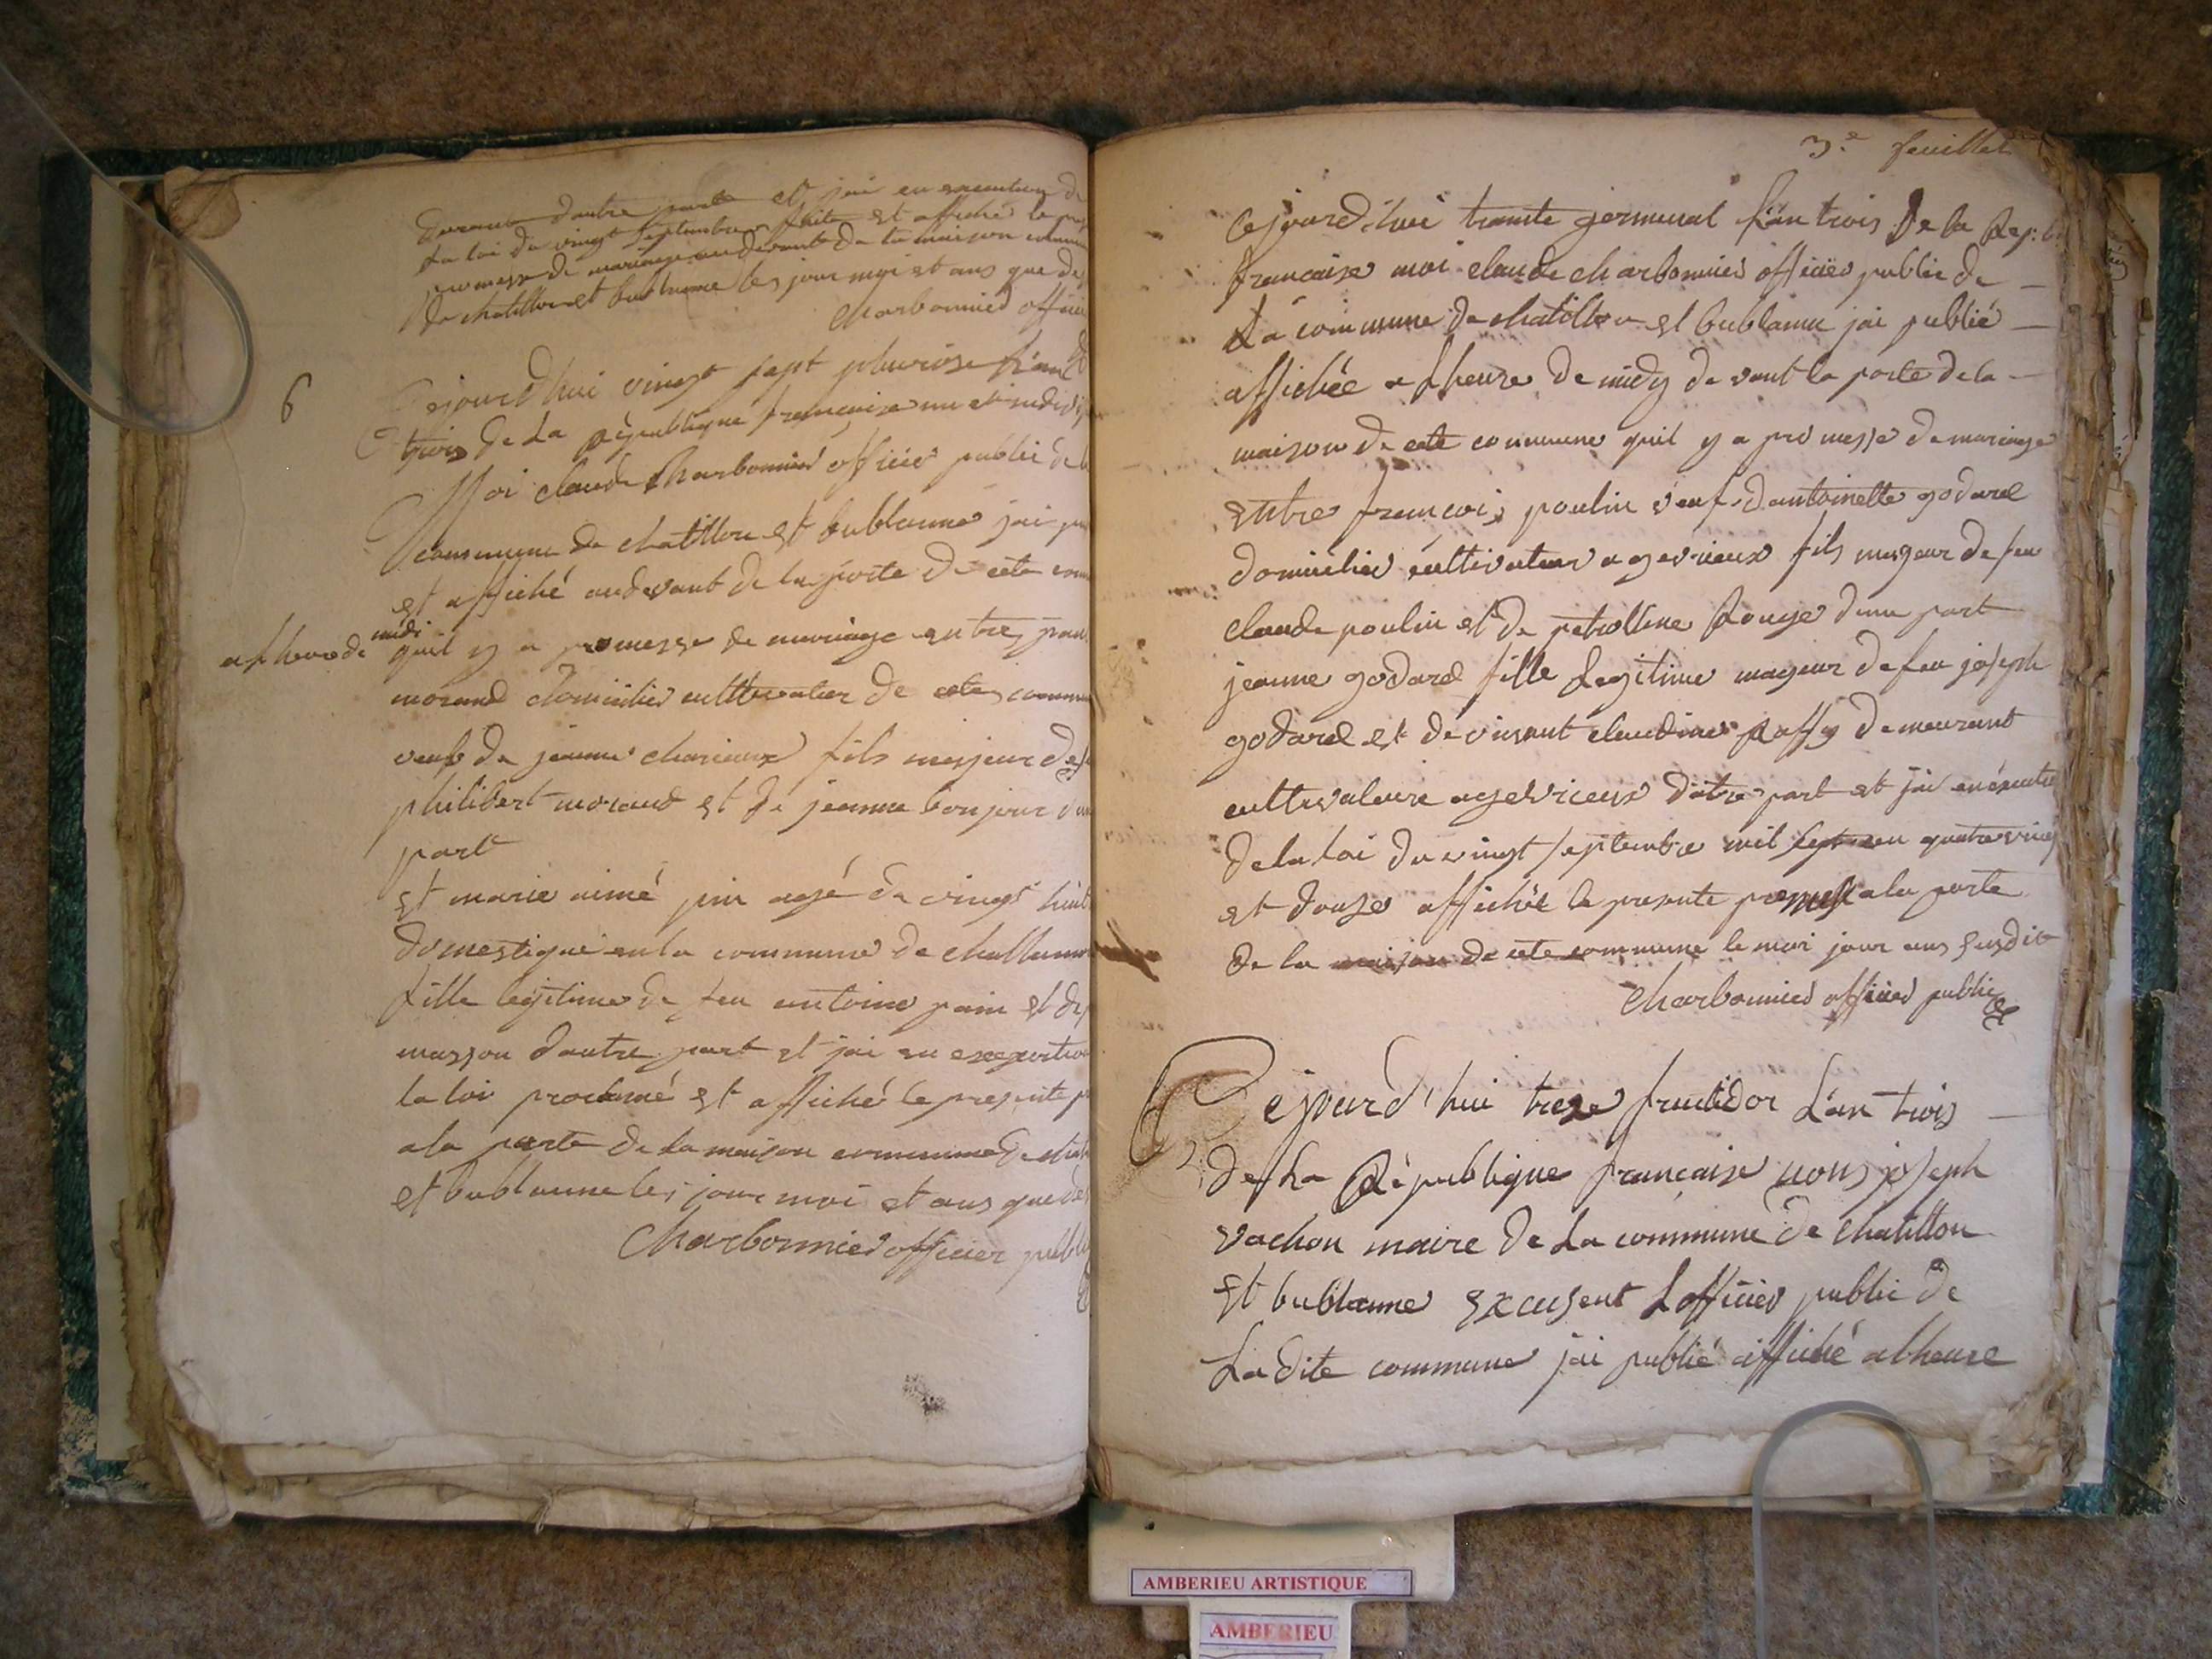 demeurant d'autre part et jai en execution de
La loi du vingt septembre faite et affiché le
promesse de mariage au devant de la maison commune
de chatillon et bublanne les jour moi et ans que de
charbonnier officier
6
Cejourd'hui vingt sept pluviose L'an
trois de La République francaise une et indivi
Moi claude Charbonnier officier public de la
commune de chatillon et bublanne jai pu
et affiché au devant de la porte de cete com
a lheure de midi
quil y a promesse de mariage entre
morand domicilier cultivateur de cete commu
veuf de jeanne charieux fils majeur de
philibert morand et de jeanne bonjour d'une
part
et marie aimé pin agé de vingt huit
domestique en la commune de
fille legitime de feu antoine pain et de
masson d'autre part et jai en
la loi proclamé et affiché le presente
a la porte de la maison commune de
et bublanne les jour moi et ans que de
Charbonnier officier public
3e feuillet
Cejourd'hui trante germinal L'an trois De la Rep
francaise moi claude charbonnier officier public de
La commune de chatillon et bublanne jai publié
affichée a Lheure de midy devant la porte de la
maison de cete commune quil y a promesse de mariage
entre francois poulin veuf d'antoinette godard
domicilier cultivateur a gevrieux fils mageur de feu
claude poulin et de petrolline Rouge d'une part
jeanne godard fille Legitime mageur de feu joseph
godard et de vivant claudine Raffy demeurant
cultivateure a gevrieux d'atre part et jai en éxecutio
de la Loi du vingt septembre mil sept cen quatre vingt
et douze affichée le presente promesse a la porte
de la maison de cete commune le moi jour ans susdit
Charbonnier officier public
Cejourd'hui treze fructidor L'an trois
de La République francaise nous joseph
vachon maire de La commune de chatillon
et bublanne excusent Lofficier public de
La dite commune jai publié affiché alheure
AMBERIEU ARTISTIQUE
AMBERIEU